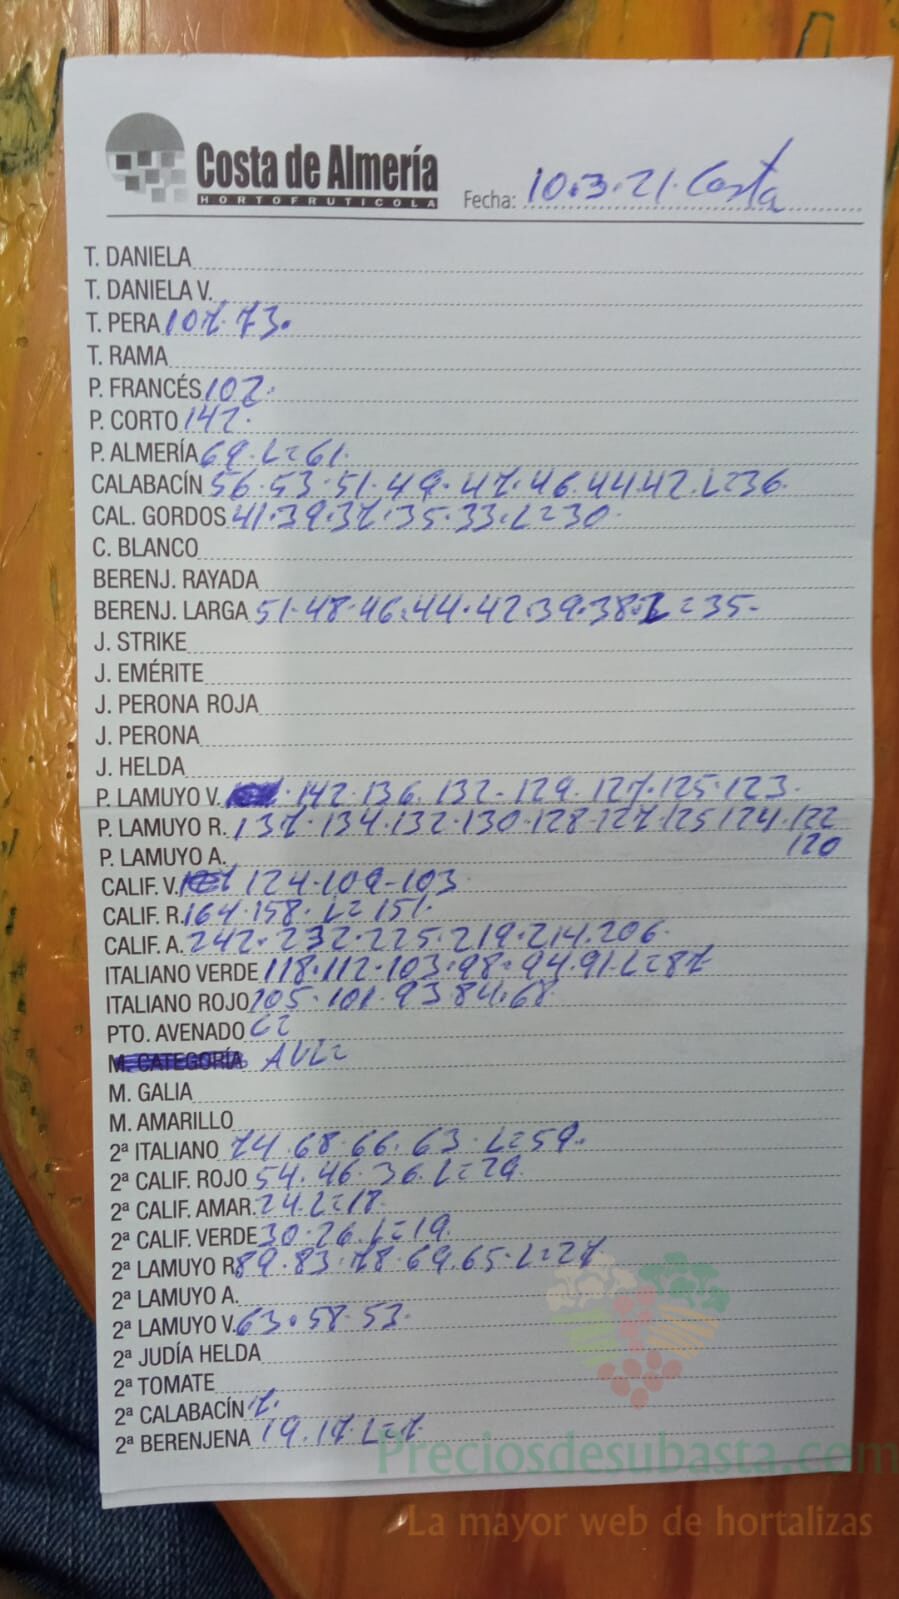 Costa de Almería
HORTOFRUTICOLA
Fecha: 10.3.21. Costa
T. DANIELA
T. DANIELA V.
T. PERA 107. 73.
T. RAMA
P. FRANCÉS 102.
P. CORTO 142.
P. ALMERÍA 69. L=61.
CALABACÍN 56.53.51.49.47.46.44.42.L=36.
CAL. GORDOS 41.39.37.35.33.L=30.
C. BLANCO
BERENJ. RAYADA
BERENJ. LARGA 51.48.46.44.42.39.38.L=35-
J. STRIKE
J. EMÉRITE
J. PERONA ROJA
J. PERONA
J. HELDA
P. LAMUYO V. 142.136.132-129.127.125.123.
P. LAMUYO R. 137.134.132.130.128-127.125 124.122
120
P. LAMUYO A.
CALIF. V. 124.109-103.
CALIF. R. 164.158. L=151.
CALIF. A. 242.232.225.219.214.206.
ITALIANO VERDE 118.112.103.98.94.91.L=87
ITALIANO ROJO 105.101.93 84.68.
PTO. AVENADO
M. CATEGORÍA
M. GALIA
M. AMARILLO
2ª ITALIANO 74.68.66.63.L=59.
2ª CALIF. ROJO 54.46.36.L=29.
2ª CALIF. AMAR. 24.L=18.
2ª CALIF. VERDE 30.26.L=19.
2ª LAMUYO R. 89.83.78.69.65.L=27
2ª LAMUYO A.
2ª LAMUYO V. 63.58.53.
2ª JUDÍA HELDA
2ª TOMATE
2ª CALABACÍN 7.
2ª BERENJENA 19.17.L=7
Preciosdesubasta.com
La mayor web de hortalizas